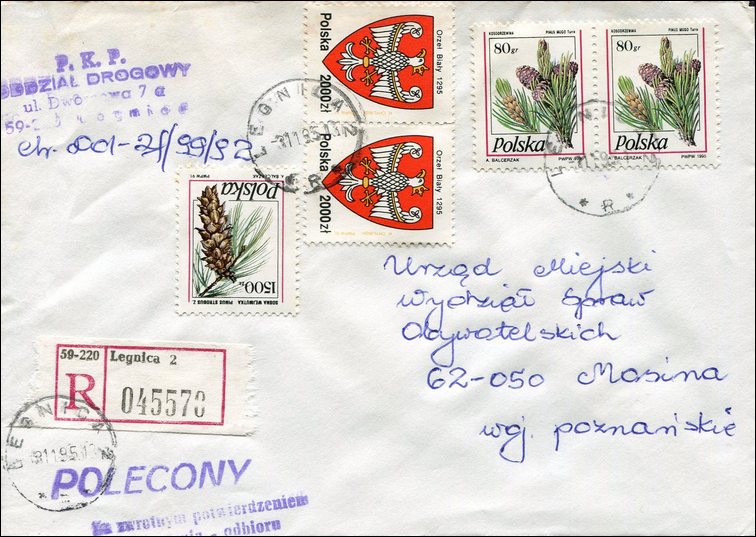 P. K. P.
ODDZIAŁ DROGOWY
ul. Dworcowa 7 a
59-2 Legnica
Polska 2000zł
Orzeł Biały 1295
Polska 2000zł
Orzeł Biały 1295
KOSODRZEWINA PINUS MUGO Turra
80gr
Polska
A. BALCERZAK PWPW 1995
KOSODRZEWINA PINUS MUGO Turra
80gr
Polska
A. BALCERZAK PWPW 1995
LEGNICA 2
-3.11.95.
* R *
* R *
Polska
A. BALCERZAK
1500zł
SOSNA WEJMUTKA PINUS STROBUS
Urząd Miejski
Wydział Spraw
Obywatelskich
62-050 Mosina
woj. poznańskie
59-220 Legnica 2
R 045570
LEGNICA 2
POLECONY
Za zwrotnym potwierdzeniem
odbioru